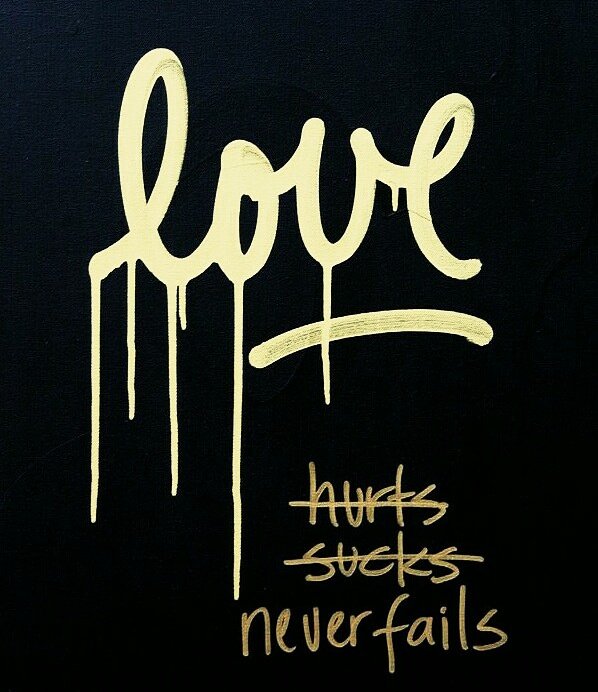 love
hurts
sucks
never fails